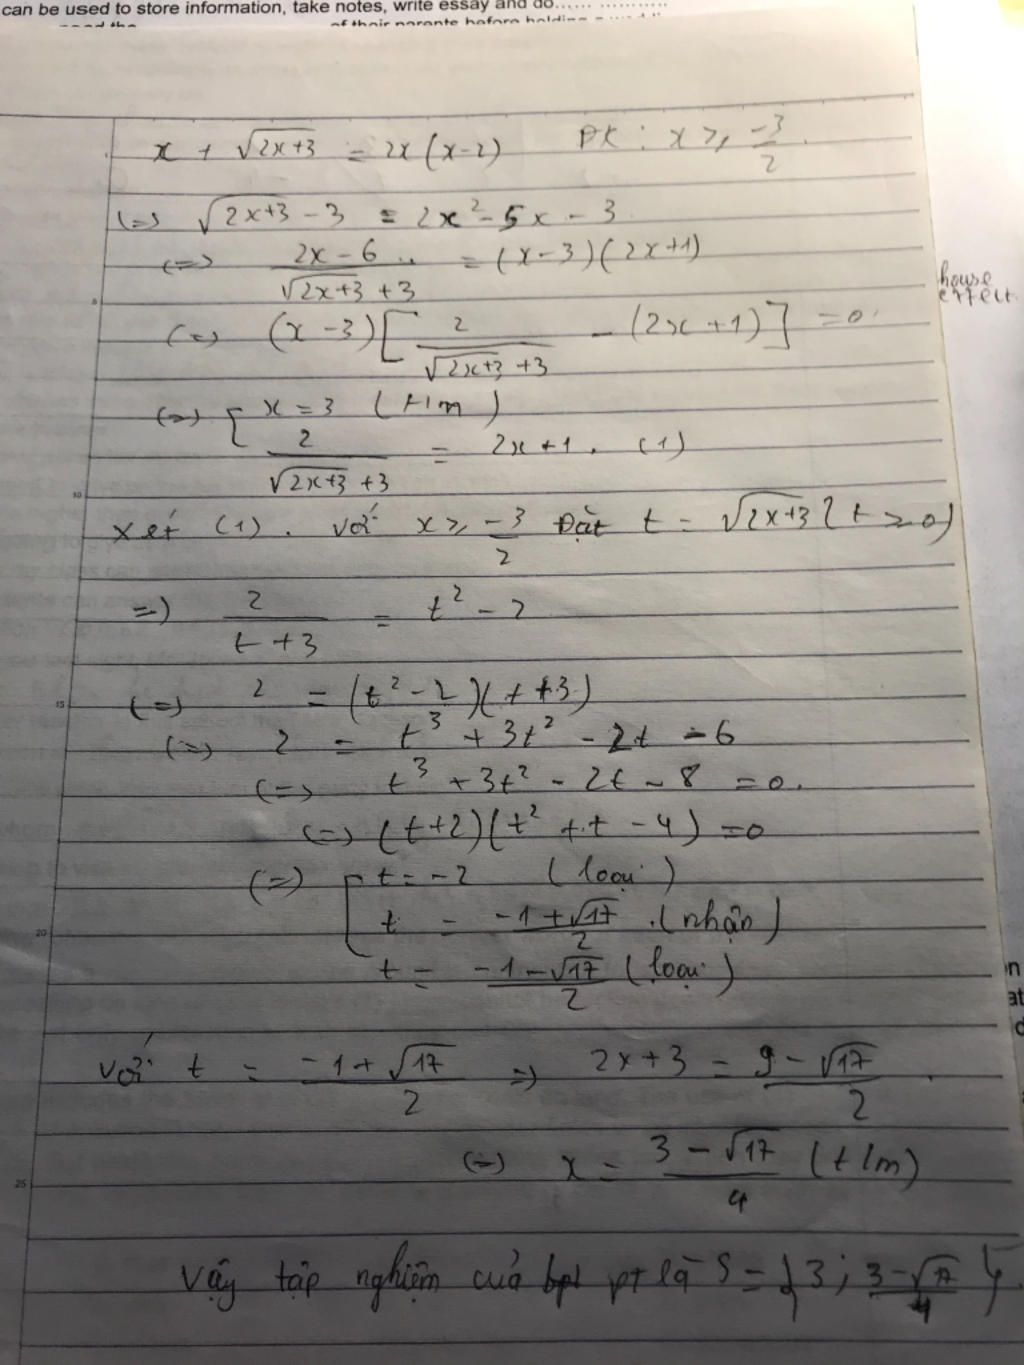 can be used to store information, take notes, write essay and do...... ............
of their parents before holding
x + √(2x+3) = 2x(x-2) ĐK: x ≥ -3/2
(=) √(2x+3) - 3 = 2x² - 5x - 3
(=) (2x - 6)/(√(2x+3) + 3) = (x-3)(2x+1)
house
effect
(=) (x - 3)[2/(√(2x+3) + 3) - (2x + 1)] = 0.
(=) [ x = 3 (t/m)
2/(√(2x+3) + 3) = 2x + 1. (1)
10
Xét (1). Với x ≥ -3/2 Đặt t = √(2x+3) (t ≥ 0)
=) 2/(t + 3) = t² - 2
15
(=) 2 = (t² - 2)(t + 3)
(=) 2 = t³ + 3t² - 2t - 6
(=) t³ + 3t² - 2t - 8 = 0.
(=) (t+2)(t² + t - 4) = 0
(=) [ t = -2 (loại)
20
t = (-1 + √17)/2 . (nhận)
t = (-1 - √17)/2 (loại)
Với t = (-1 + √17)/2 =) 2x + 3 = (9 - √17)/2 .
(=) x = (3 - √17)/4 (t/m)
25
Vậy tập nghiệm của bpt pt là S = {3; (3-√17)/4}.